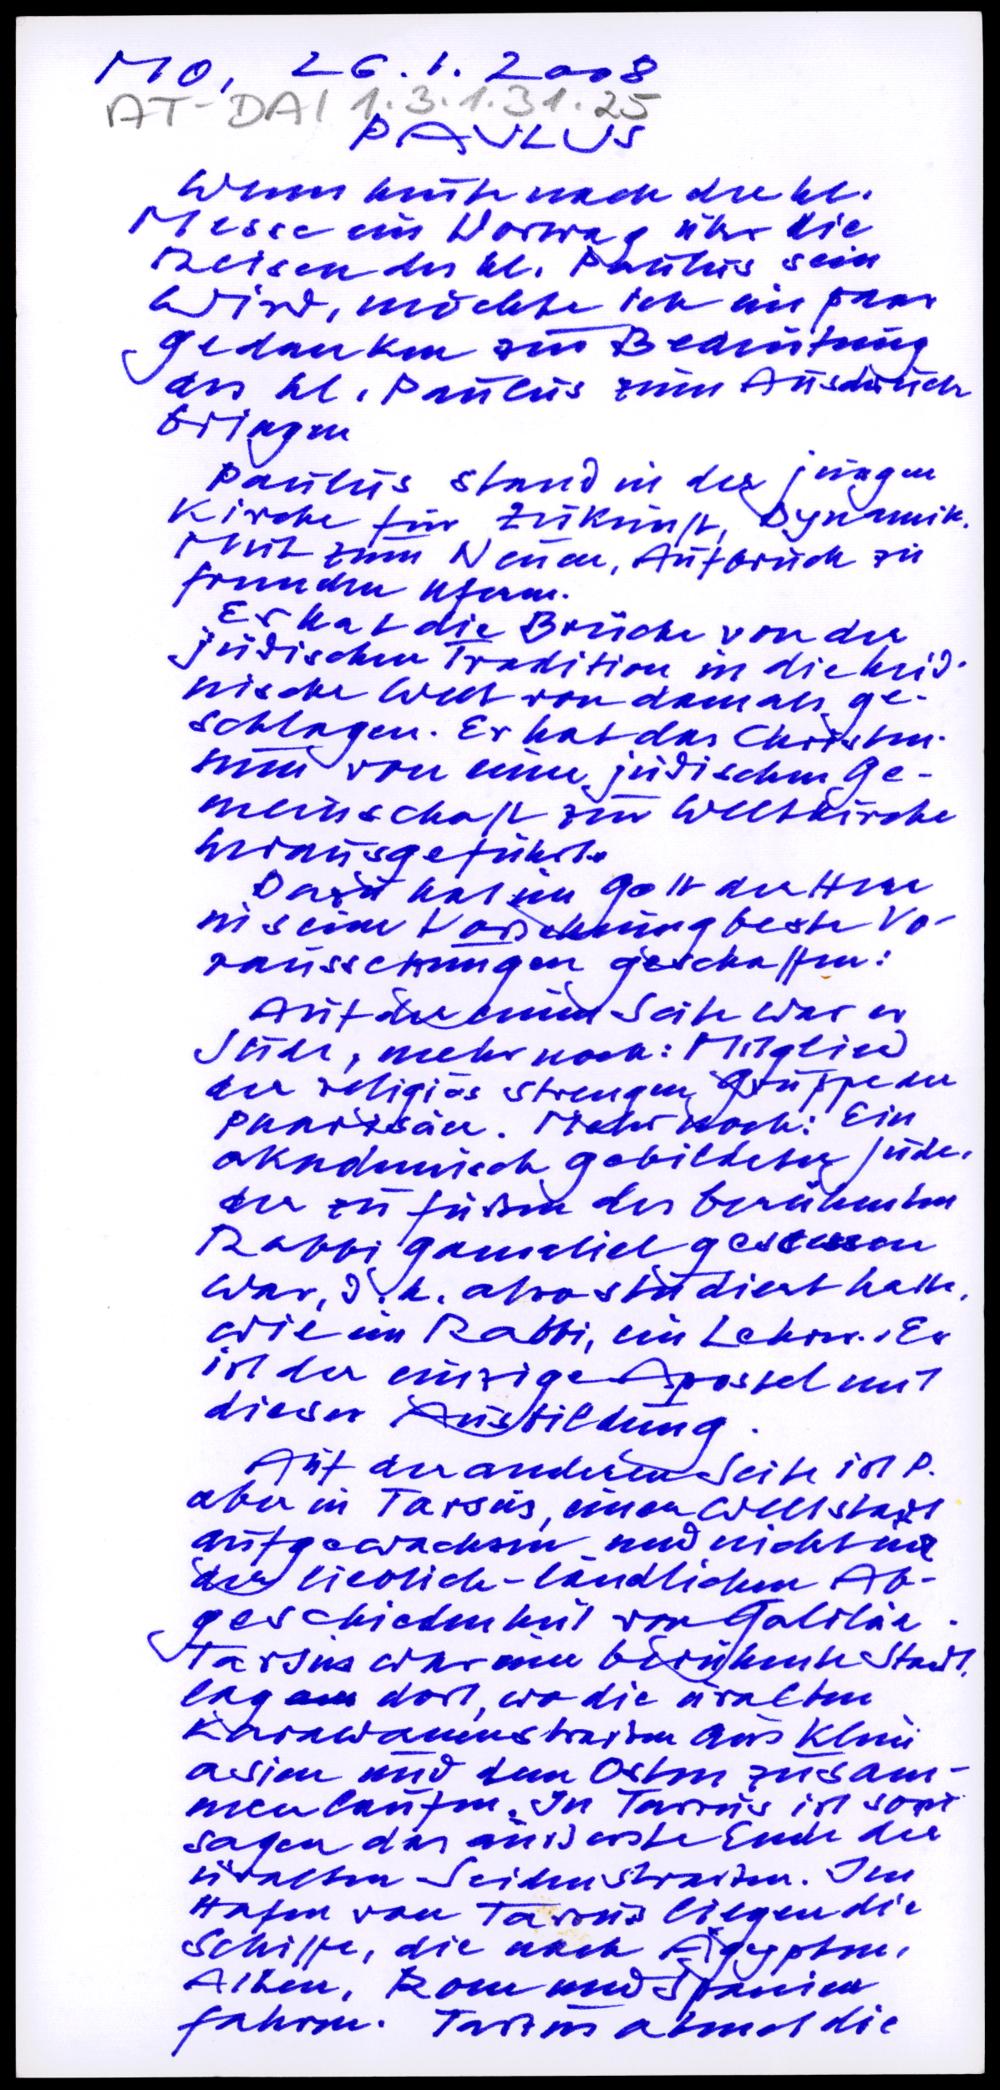 MO, 26.1.2008
AT-DAI 1.3.1.31.25
PAULUS
Wenn heute nach der hl.
Messe ein Vortrag über die
Reisen des hl. Paulus sein
wird, möchte ich ein paar
Gedanken zur Bedeutung
des hl. Paulus zum Ausdruck
bringen
Paulus stand in der jungen
Kirche für Zukunft, Dynamik.
Mut zum Neuen, Aufbruch zu
fremden Ufern.
Er hat die Brücke von der
jüdischen Tradition in die heid-
nische Welt von damals ge-
schlagen. Er hat das Christen-
tum von einer jüdischen Ge-
meinschaft zur Weltkirche
herausgeführt.
Dazu hat im Gott der Herr
in seiner Vorsehung beste Vo-
raussetzungen geschaffen:
Auf der einen Seite war er
Jude, mehr noch: Mitglied
der religiös strengen Gruppe der
Pharisäer. Mehr noch: Ein
akademisch gebildeter Jude,
der zu füßen des berühmten
Rabbi Gamaliel gesessen
war, d.h. also studiert hatte,
wie ein Rabbi, ein Lehrer. Er
ist der einzige Apostel mit
dieser Ausbildung.
Auf der anderen Seite ist P.
aber in Tarsus, einer Weltstadt
aufgewachsen und nicht in
der lieblich-ländlichen Ab-
geschiedenheit von Galiläa.
Tarsus war eine berühmte Stadt,
lag dort, wo die uralten
Karawanenstraßen aus Klein
asien und dem Osten zusam-
menlaufen. In Tarsus ist sozu
sagen das äusserste Ende der
uralten Seidenstraßen. Im
Hafen von Tarsus liegen die
Schiffe, die nach Ägypten,
Athen, Rom und Spanien
fahren. Tarsus atmet die